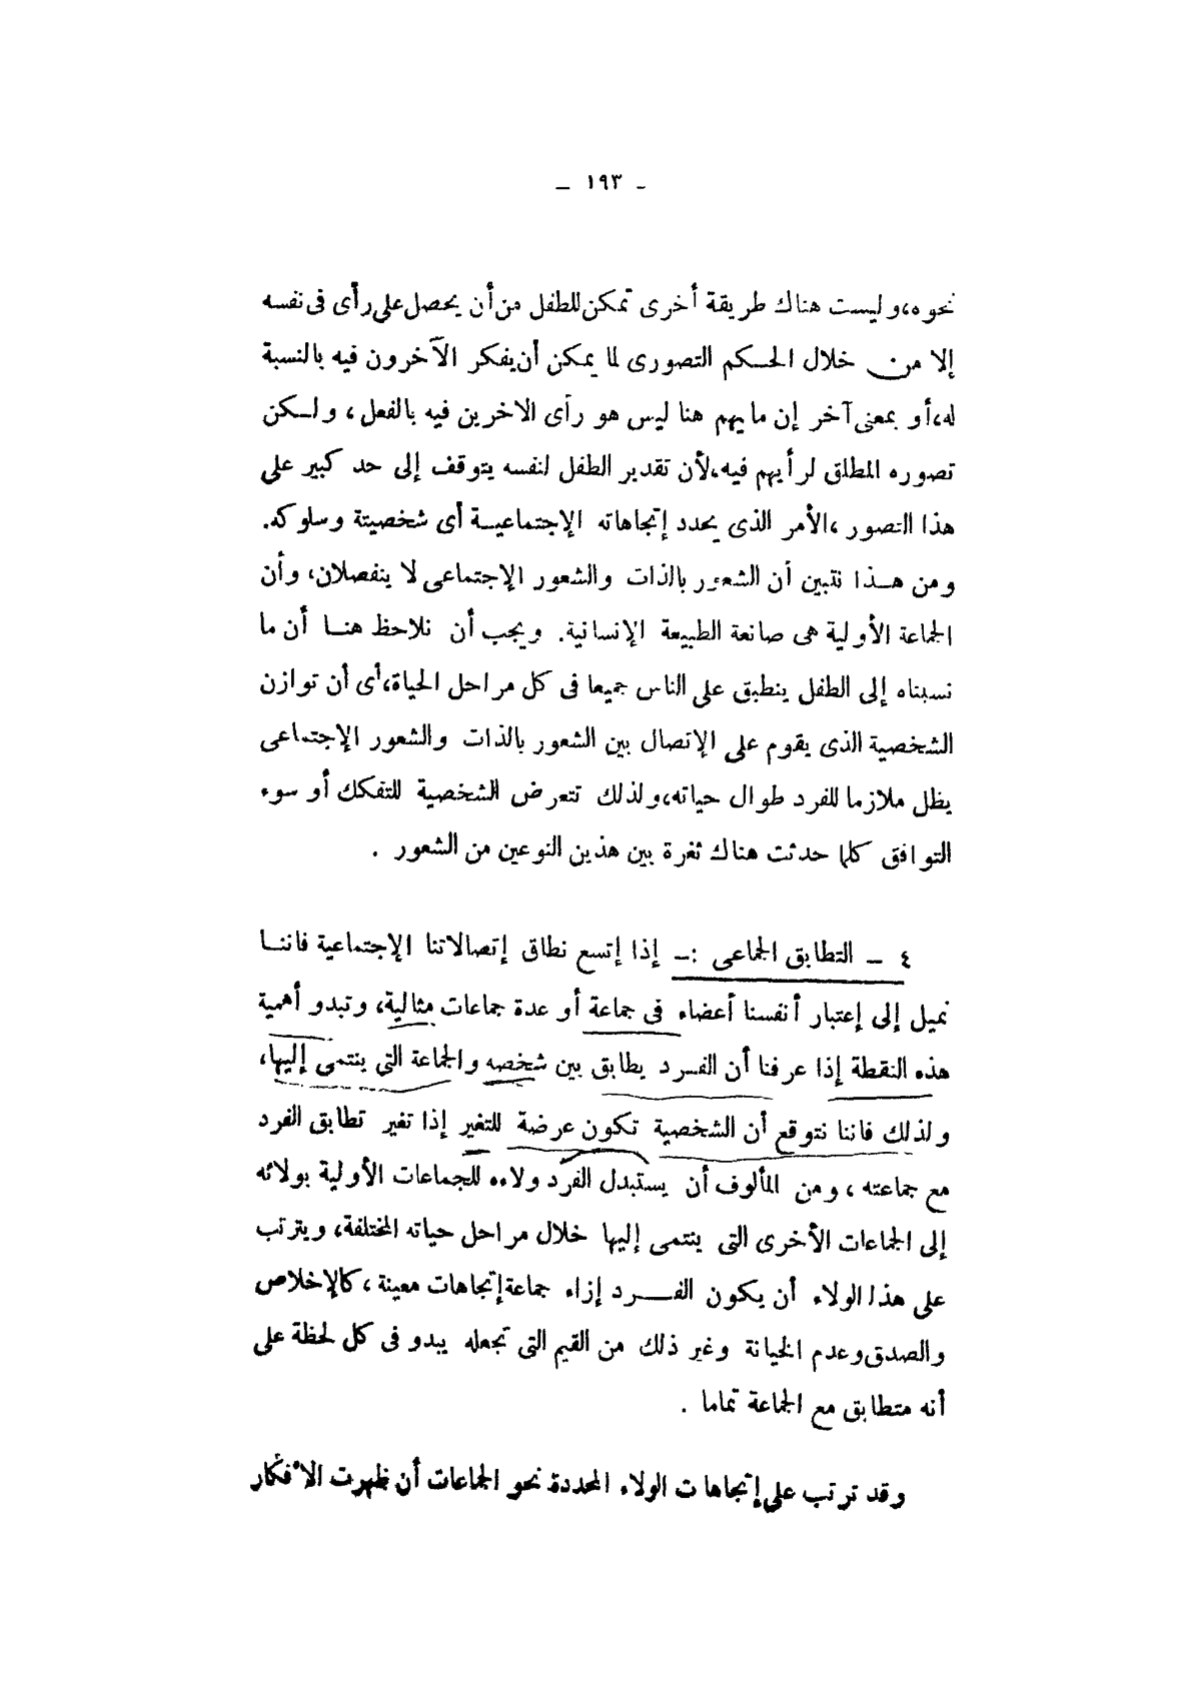 - ١٩٣ -
نحوه، وليست هناك طريقة أخرى تمكن للطفل من أن يحصل على رأى فى نفسه
إلا من خلال الحكم التصورى لما يمكن أن يفكر الآخرون فيه بالنسبة
له، أو بمعنى آخر إن ما يهم هنا ليس هو رأى الاخرين فيه بالفعل ، ولكن
تصوره المطلق لرأيهم فيه، لأن تقدير الطفل لنفسه يتوقف إلى حد كبير على
هذا التصور ، الأمر الذى يحدد إتجاهاته الإجتماعية أى شخصيتة وسلوكه.
ومن هذا نتبين أن الشعور بالذات والشعور الإجتماعى لا ينفصلان، وأن
الجماعة الأولية هى صانعة الطبيعة الإنسانية. ويجب أن نلاحظ هنا أن ما
نسبناه إلى الطفل ينطبق على الناس جميعا فى كل مراحل الحياة، أى أن توازن
الشخصية الذى يقوم على الإتصال بين الشعور بالذات والشعور الإجتماعى
يظل ملازما للفرد طوال حياته، ولذلك تتعرض الشخصية للتفكك أو سوء
التوافق كلما حدثت هناك ثغرة بين هذين النوعين من الشعور .
٤ - التطابق الجماعى :- إذا إتسع نطاق إتصالاتنا الإجتماعية فاننا
نميل إلى إعتبار أنفسنا أعضاء فى جماعة أو عدة جماعات مثالية، وتبدو أهمية
هذه النقطة إذا عرفنا أن الفرد يطابق بين شخصه والجماعة التى ينتمى إليها،
ولذلك فاننا نتوقع أن الشخصية تكون عرضة للتغير إذا تغير تطابق الفرد
مع جماعته ، ومن المألوف أن يستبدل الفرد ولاءه للجماعات الأولية بولائه
إلى الجماعات الأخرى التى ينتمى إليها خلال مراحل حياته المختلفة، ويترتب
على هذا الولاء أن يكون الفرد إزاء جماعة إتجاهات معينة ، كالإخلاص
والصدق وعدم الخيانة وغير ذلك من القيم التى تجعله يبدو فى كل لحظة على
أنه متطابق مع الجماعة تماما .
وقد ترتب على إتجاهات الولاء المحددة نحو الجماعات أن ظهرت الأفكار